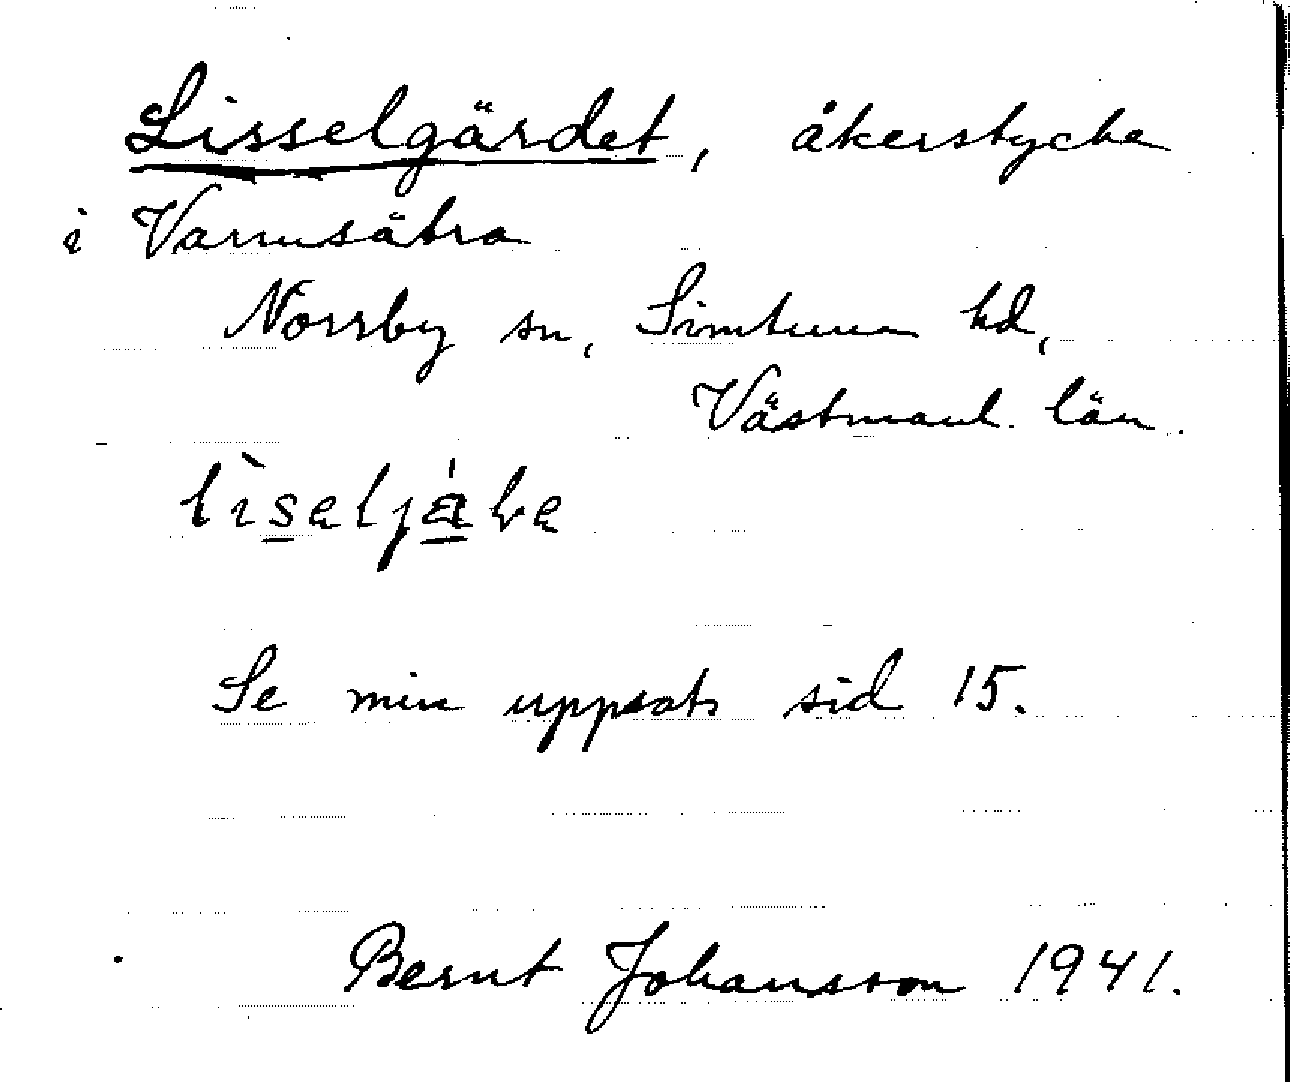 Lisselgärdet, åkerstycke
i Varmsätra
Norrby sn, Simtuna hd,
Västmanl. län.
Se min uppsats sid 15.
Bernt Johansson 1941.